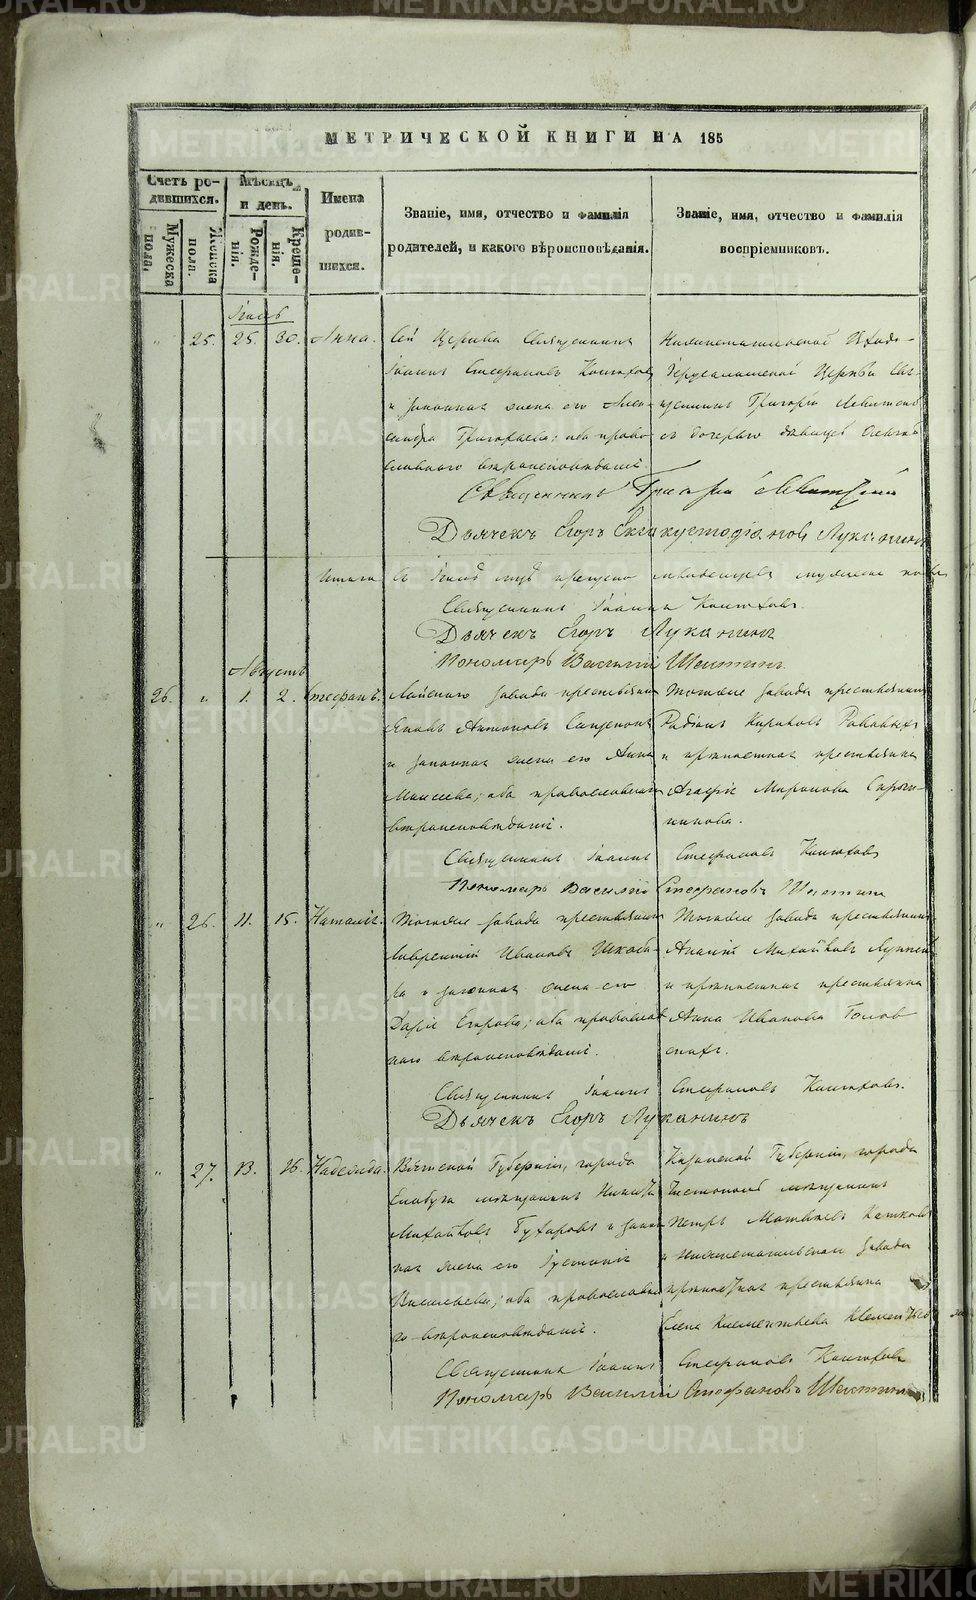 МЕТРИЧЕСКОЙ КНИГИ НА 185
Счетъ ро-
дившихся.
Мужеска
пола.
Женска
пола.
Мѣсяцъ
и день.
Рожде-
нія.
Креще-
нія.
Имена
родив-
шихся.
Званіе, имя, отчество и фамилія
родителей, и какого вѣроисповѣданія.
Званіе, имя, отчество и фамилія
воспріемниковъ.
Іюль
25. 25. 30. Анна.
Сей Церкви Священникъ
Іоаннъ Стефановъ Конюховъ
и законная жена его Алек-
сандра Григорьева; оба право-
славнаго вѣроисповѣданія.
Нижнетагильской Входо-
Іерусалимской Церкви Свя-
щенникъ Григорій Левитскій
съ дочерью дѣвицей
Священникъ Григорій Левитскій
Дьячекъ Егоръ Лукканинъ
Итого
въ Іюлѣ мужеска пола
Священникъ Іоаннъ Конюховъ.
Дьячекъ Егоръ Луканинъ
Пономарь Василій Шишинъ
Августъ
26. " 1. 2. Стефанъ.
Лайскаго завода крестьянинъ
Яковъ Антоновъ
и законная жена его Анна
Моисеева; оба православнаго
вѣроисповѣданія.
Тогоже завода крестьянинъ
Родіонъ Кириковъ
и крестьянка
Агафія Миронова Сыро-
Священникъ Іоаннъ Стефановъ Конюховъ
Пономарь Василій Стефановъ Шишинъ
" 26. 11. 15. Наталія.
Тогоже завода крестьянинъ
Лаврентій Ивановъ
и законная жена его
Дарія Егорова; оба православ-
наго вѣроисповѣданія.
Тогоже завода крестьянинъ
Михайловъ
и крестьянка
Анна Иванова Голов-
ныхъ.
Священникъ Іоаннъ Стефановъ Конюховъ.
Дьячекъ Егоръ Луканинъ
" 27. 13. 16. Надежда.
Вятской Губерніи, города
Елабуги мѣщанинъ Никита
Михайловъ и закон-
ная жена его Іустинія
Васильева; оба православна-
го вѣроисповѣданія.
Казанской Губерніи, города
Чистополя мѣщанинъ
Петръ Матвѣевъ
и Нижнетагильскаго завода
крестьянка
Елена Клементьева
Священникъ Іоаннъ Стефановъ Конюховъ
Пономарь Василій Стефановъ Шишинъ
METRIKI.GASO-URAL.RU